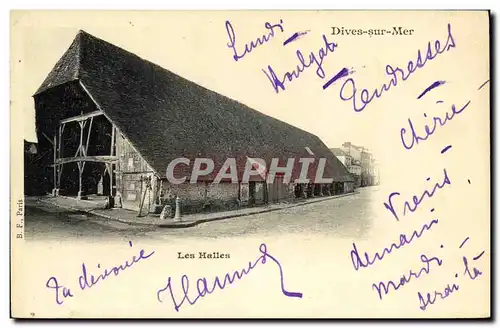 Dives-sur-Mer
Lundi
Houlgate
Tendresses
Chérie
Viens
demain
Mardi
serai là
CAPHIL
B. F., Paris
Les Halles
Ta dévouée
Hanne